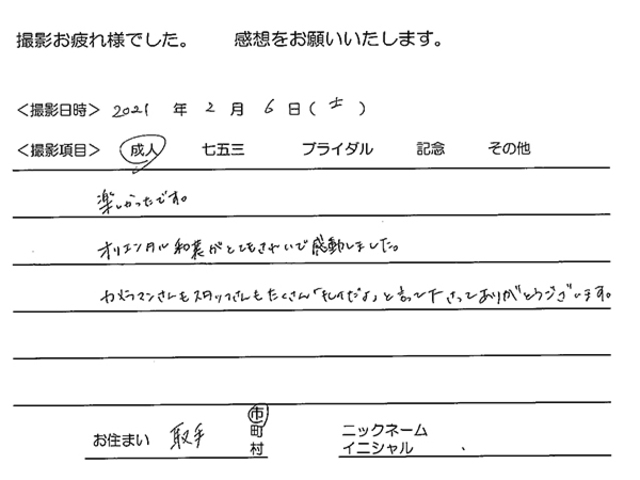 撮影お疲れ様でした。　感想をお願いいたします。
＜撮影日時＞ 2021 年 2 月 6 日（土）
＜撮影項目＞ 成人 七五三 ブライダル 記念 その他
楽しかったです。
オリエンタル和装がとてもきれいで感動しました。
カメラマンさんもスタッフさんもたくさん「きれいだよ」と言って下さってありがとうございます。
お住まい 取手 市 町 村
ニックネーム
イニシャル